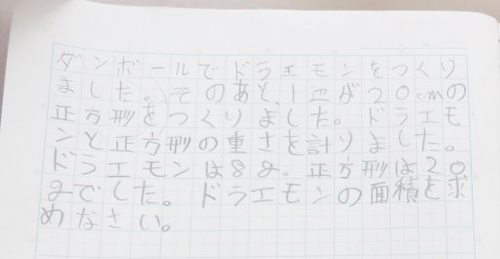 ダンボールでドラエモンをつくり
ました。そのあと、1辺が20cmの
正方形をつくりました。ドラエモ
ンと正方形の重さを計りました。
ドラエモンは88g、正方形は20
gでした。ドラエモンの面積を求
めなさい。